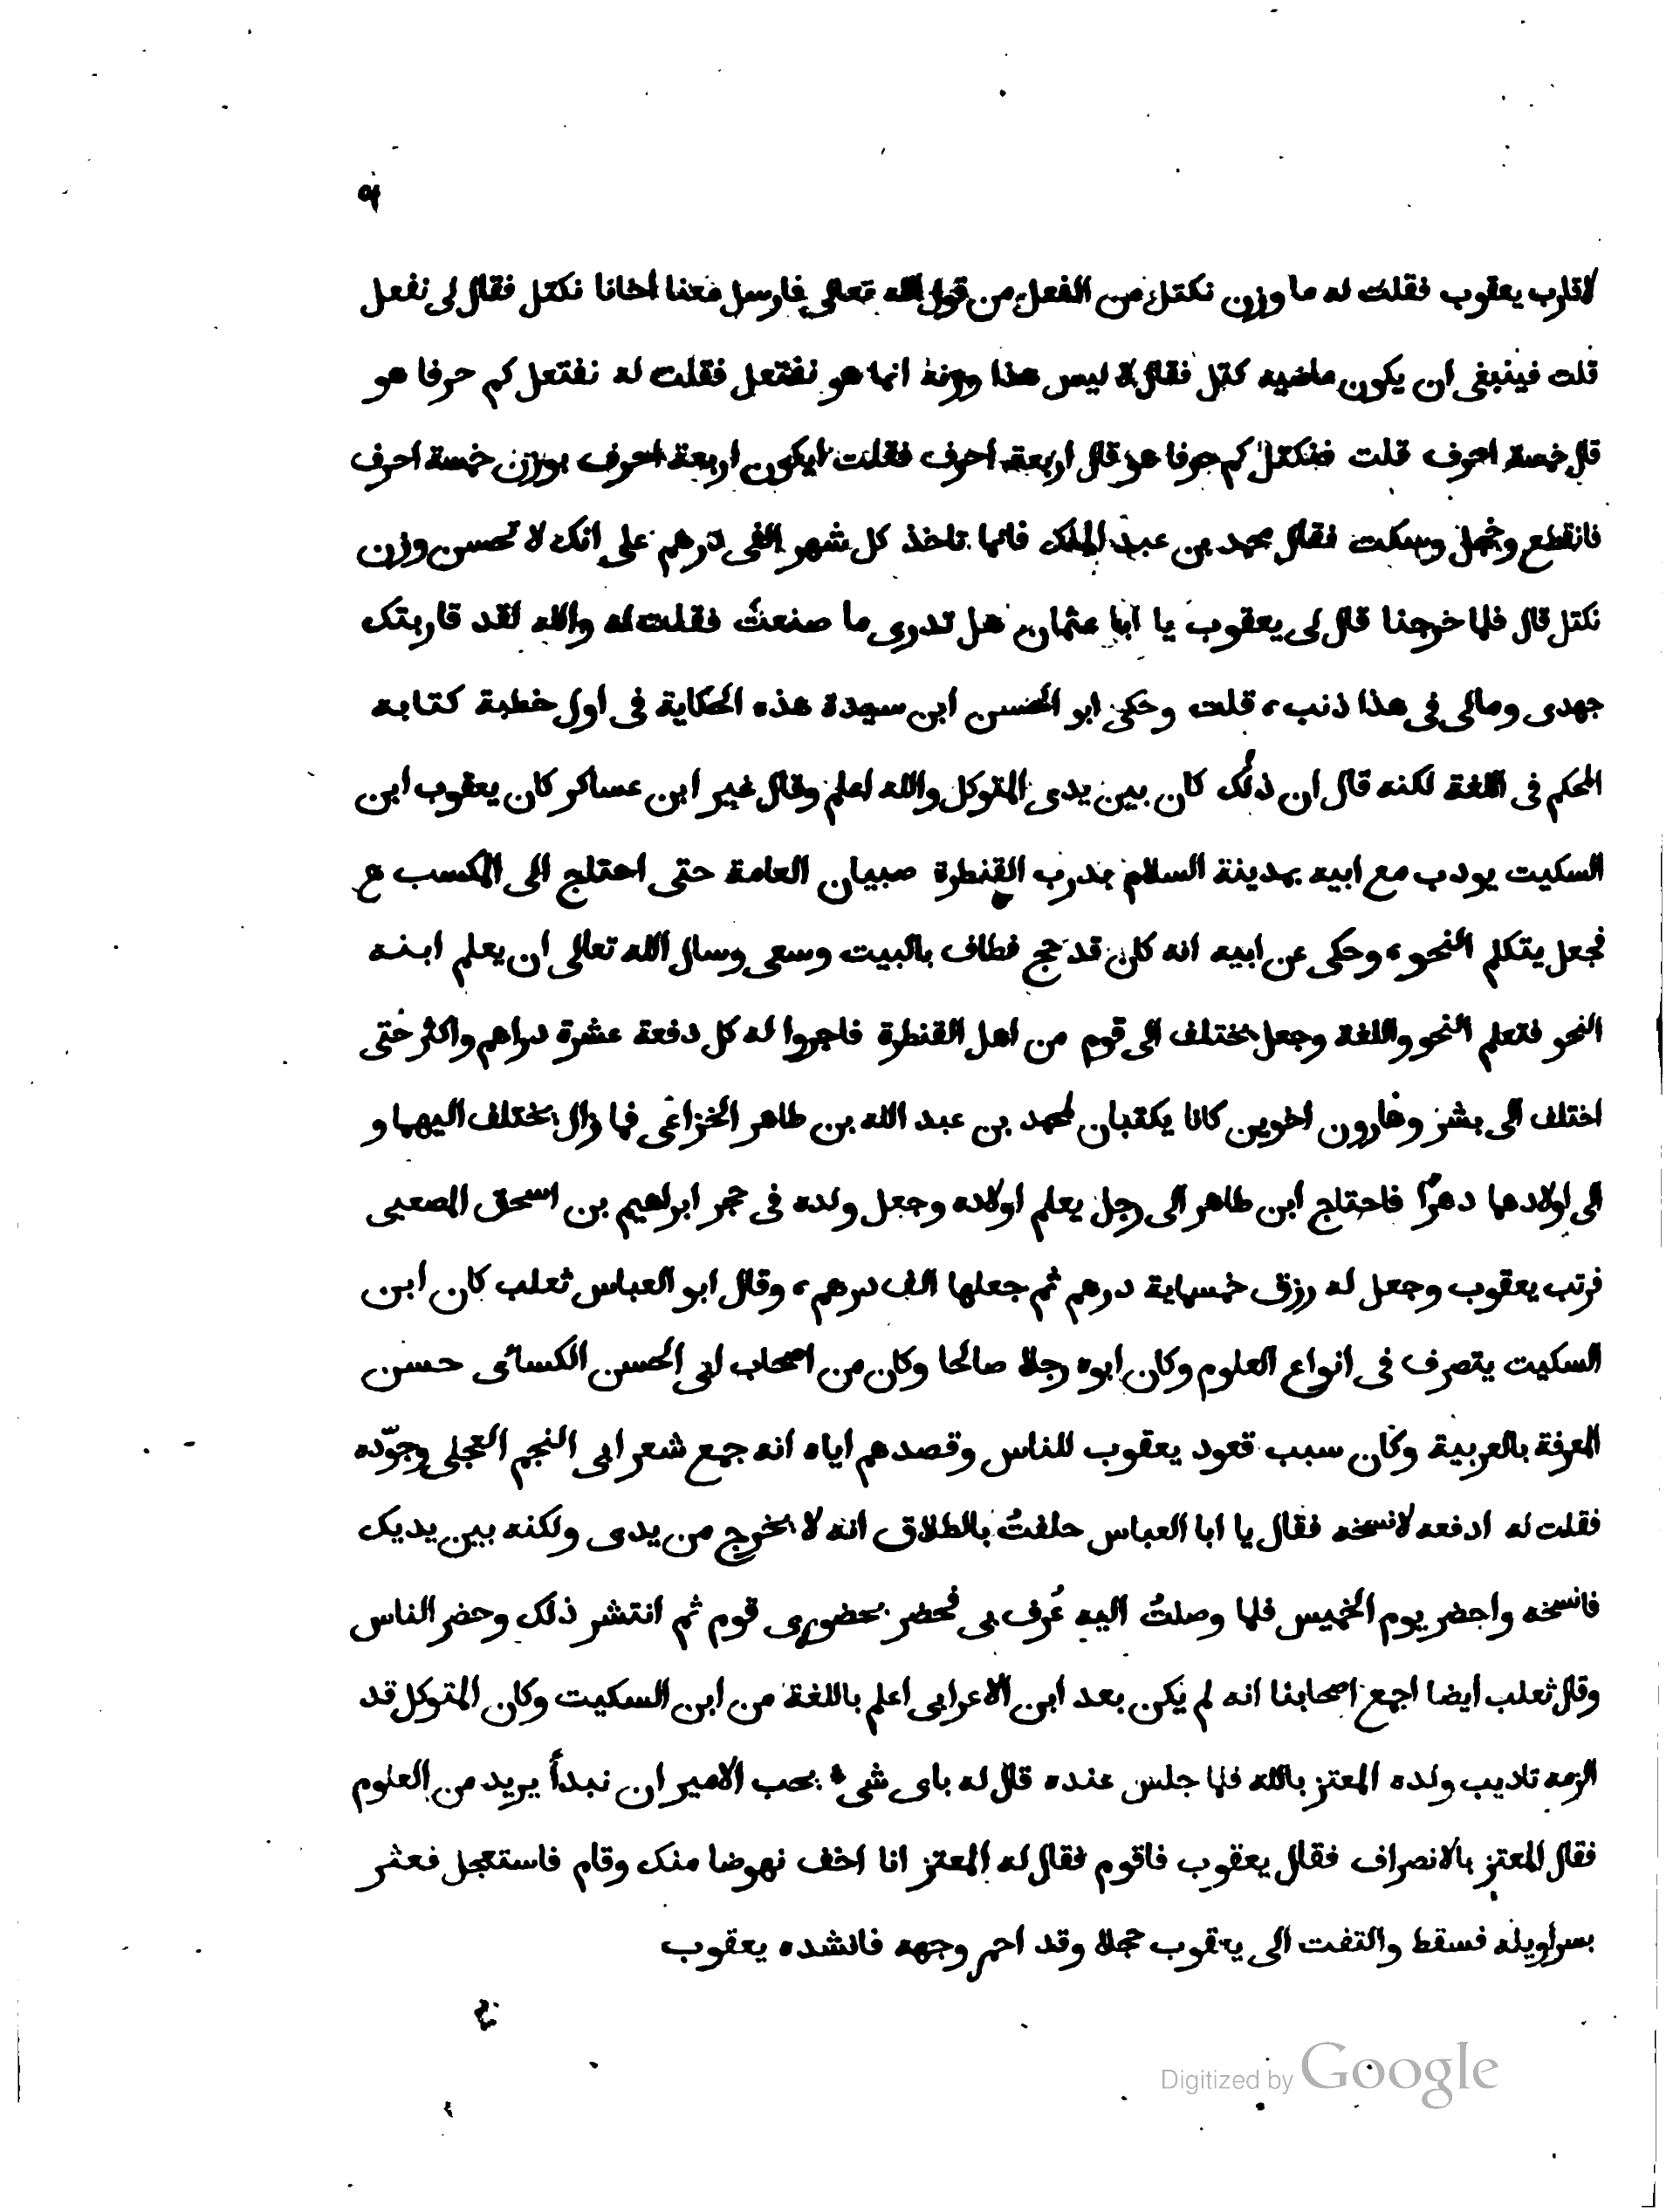 ٩
لاقارب يعقوب فقلت له ما وزن نكتل من الفعل من قول الله تعالى فارسل معنا اخانا نكتل فقال لى نفعل
قلت فينبغى ان يكون ماضيه كتل فقال لا ليس هذا وزنه انما هو نفتعل فقلت له نفتعل كم حرفا هو
قال خمسة احرف قلت فنكتل كم حرفا هو قال اربعة احرف فقلت ايكون اربعة احرف بوزن خمسة احرف
فانقطع وخجل وسكت فقال محمد بن عبد الملك فانما تاخذ كل شهر الفى درهم على انك لا تحسن وزن
نكتل قال فلما خرجنا قال لى يعقوب يا ابا عثمان هل تدرى ما صنعت فقلت له والله لقد قاربتك
جهدى ومالى فى هذا ذنب، قلت وحكى ابو الحسن ابن سيدة هذه الحكاية فى اول خطبة كتابه
المحكم فى اللغة لكنه قال ان ذلك كان بين يدى المتوكل والله اعلم وقال غير ابن عساكر كان يعقوب ابن
السكيت يودب مع ابيه بمدينة السلام بدرب القنطرة صبيان العامة حتى احتاج الى الكسب
فجعل يتكلم النحو، وحكى عن ابيه انه كان قد حج فطاف بالبيت وسعى وسال الله تعالى ان يعلم ابنه
النحو فتعلم النحو واللغة وجعل يختلف الى قوم من اهل القنطرة فاجروا له كل دفعة عشرة دراهم واكثر حتى
اختلف الى بشر وهارون اخوين كانا يكتبان لمحمد بن عبد الله بن طاهر الخزاعى فما زال يختلف اليهما و
الى اولادهما دهرًا فاحتاج ابن طاهر الى رجل يعلم اولاده وجعل ولده فى حجر ابراهيم بن اسحق المصعبى
فرتب يعقوب وجعل له رزق خمسماية درهم ثم جعلها الف درهم، وقال ابو العباس ثعلب كان ابن
السكيت يتصرف فى انواع العلوم وكان ابوه رجلا صالحا وكان من اصحاب ابى الحسن الكسائى حسن
المعرفة بالعربية وكان سبب قعود يعقوب للناس وقصدهم اياه انه جمع شعر ابى النجم العجلى وجوّده
فقلت له ادفعه لانسخه فقال يا ابا العباس حلفتُ بالطلاق انه لا يخرج من يدى ولكنه بين يديك
فانسخه واحضر يوم الخميس فلما وصلتُ اليه عُرف بى فحضر بحضورى قوم ثم انتشر ذلك وحضر الناس
وقال ثعلب ايضا اجمع اصحابنا انه لم يكن بعد ابن الاعرابى اعلم باللغة من ابن السكيت وكان المتوكل قد
الزمه تاديب ولده المعتز بالله فلما جلس عنده قال له باى شىء يحب الامير ان نبدأ يريد من العلوم
فقال المعتز بالانصراف فقال يعقوب فاقوم فقال له المعتز انا اخف نهوضا منك وقام فاستعجل فعثر
بسراويله فسقط والتفت الى يعقوب خجلا وقد احمر وجهه فانشده يعقوب
Digitized by Google